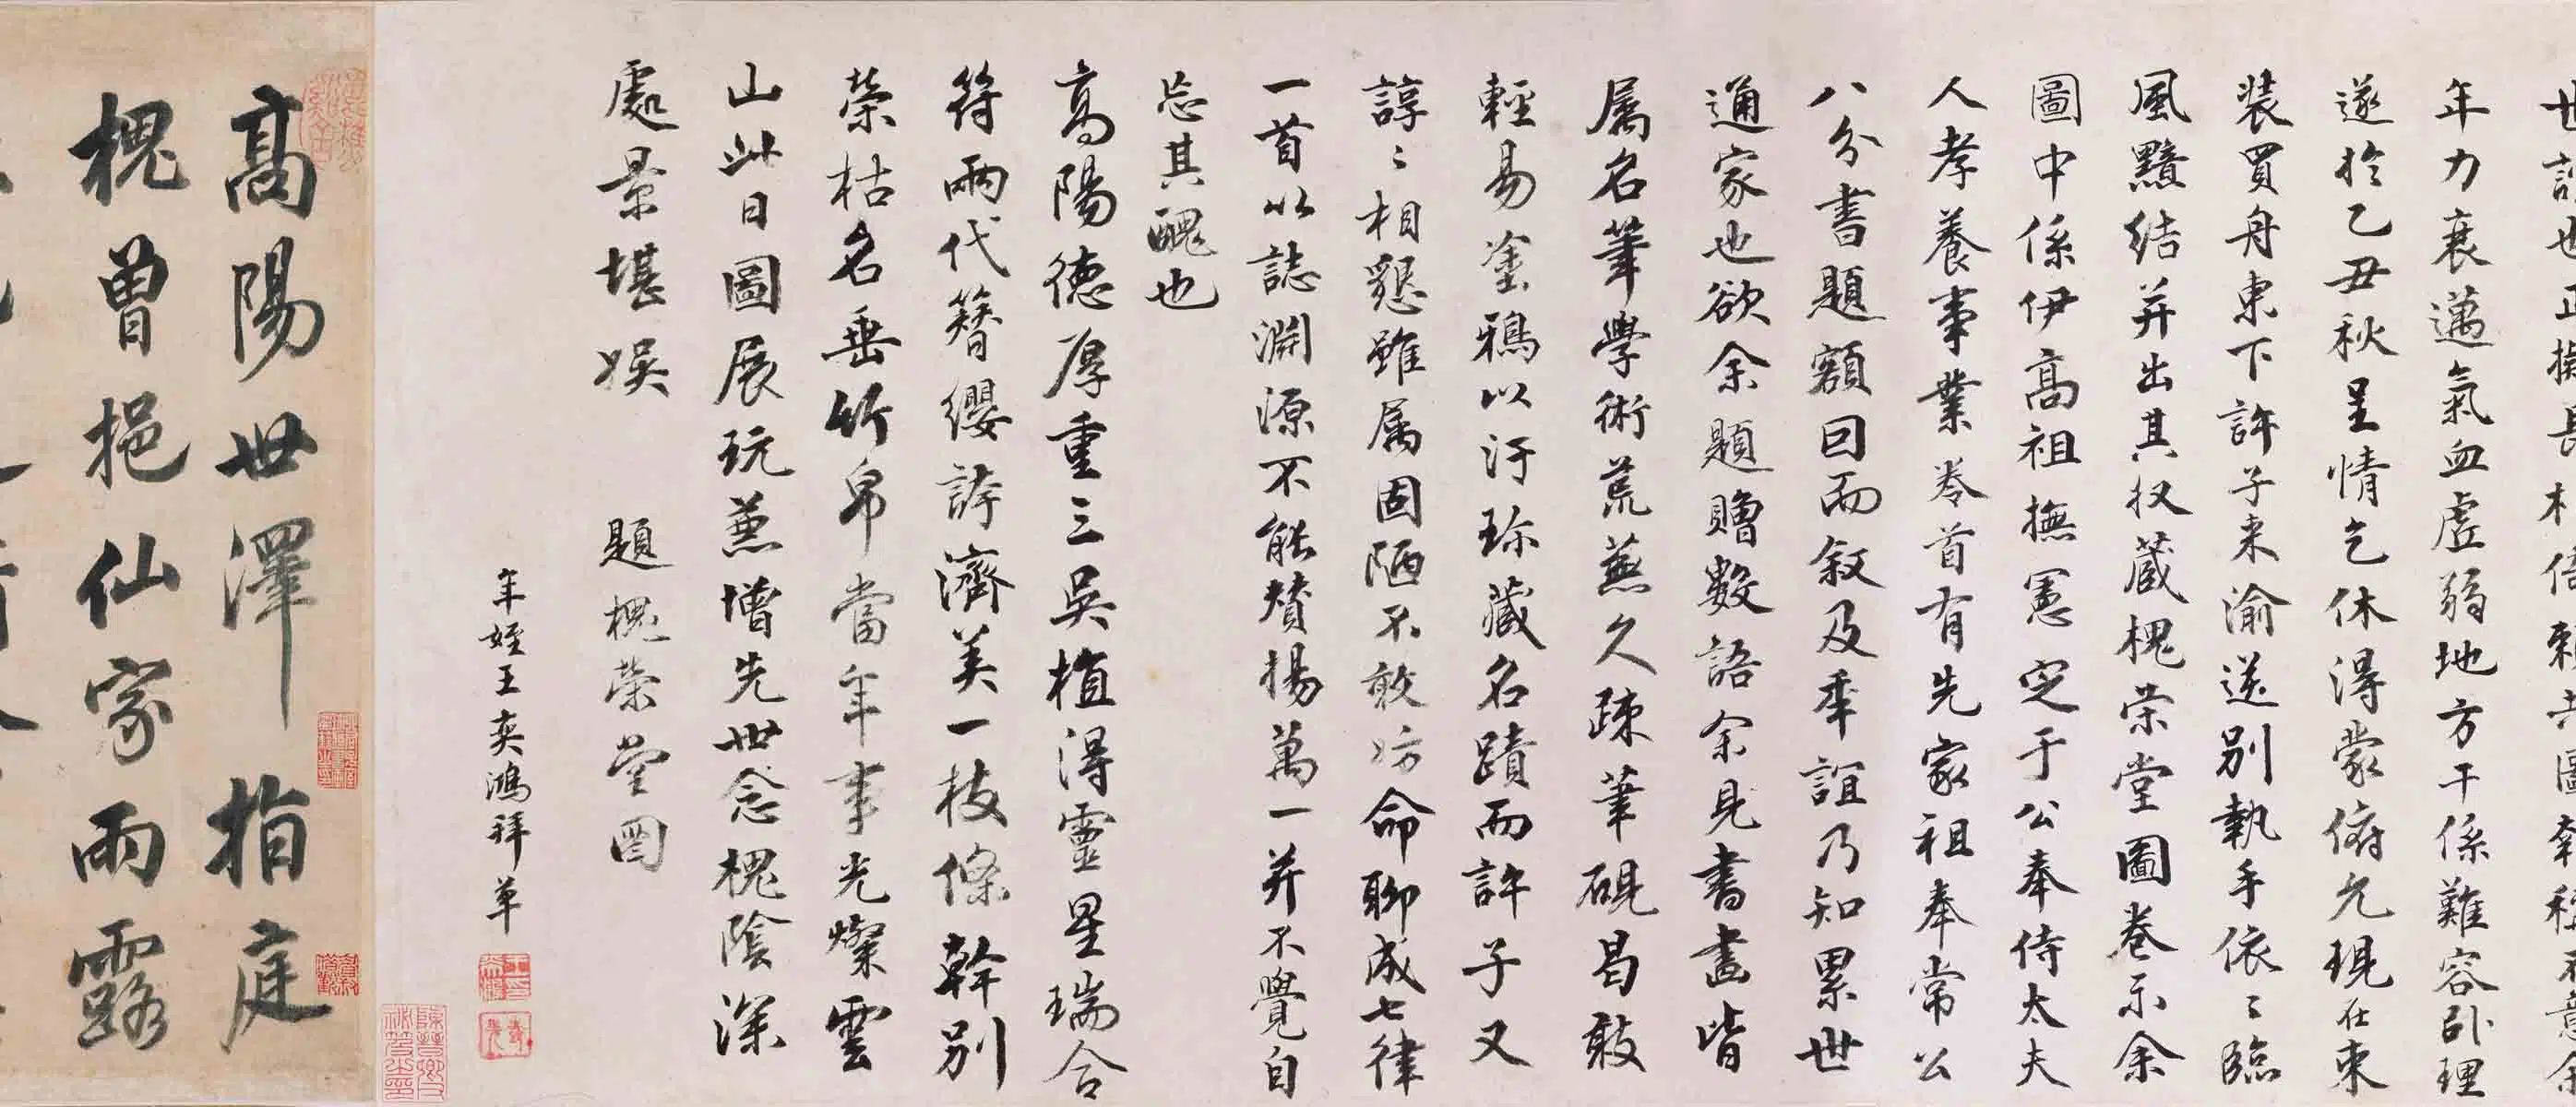 年力衰邁氣血虛弱地方干係難容卧理
遂於乙丑秋呈情乞休得蒙俯允現在束
裝買舟東下許子来渝送别執手依〻臨
風黯结并出其收蔵槐荣堂圖卷示余
圖中係伊高祖撫憲定于公奉侍太夫
人孝養事業卷首有先家祖奉常公
八分書題額因而叙及年誼乃知累世
通家也欲余題贈數語余見書畫皆
属名筆學術荒蕪久疎筆硯曷敢
輕易塗鴉以汙珎藏名蹟而許子又
諄〻相懇雖属固陋不敢方命聊成七律
一首以誌淵源不能賛揚萬一并不覺自
忘其醜也
高陽德厚重三吳植得靈星瑞合
符兩代簪纓誇濟美一枝條幹别
榮枯名垂竹帛當年事光燦雲
山此日圖展玩蒽增先世念槐陰深
處景堪娱 題槐榮堂圖
年姪王奕鴻拜草
高陽世澤 指庭
槐曾挹仙家雨露